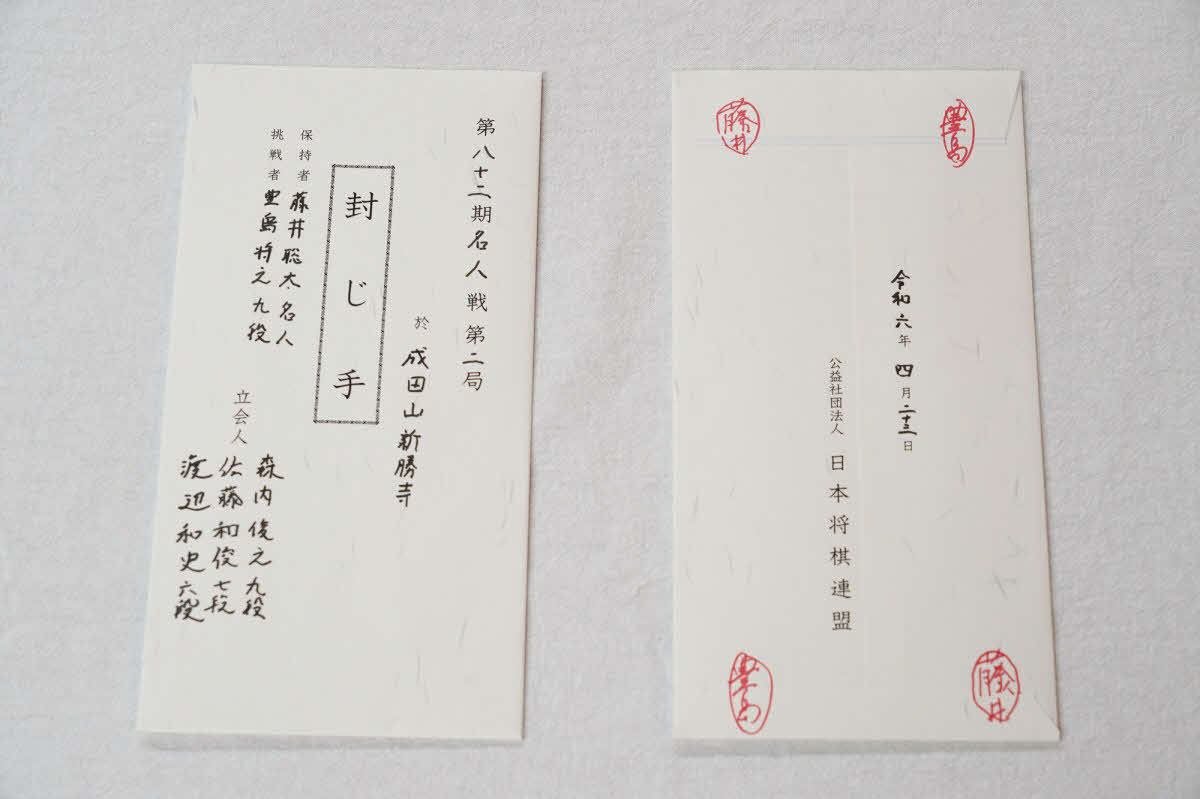 第八十二期名人戦第二局
於 成田山新勝寺
封じ手
保持者 藤井聡太名人
挑戦者 豊島将之九段
立会人
森内俊之九段
佐藤和俊七段
渡辺和史六段
藤井
豊島
令和六年四月二十三日
公益社団法人 日本将棋連盟
豊島
藤井